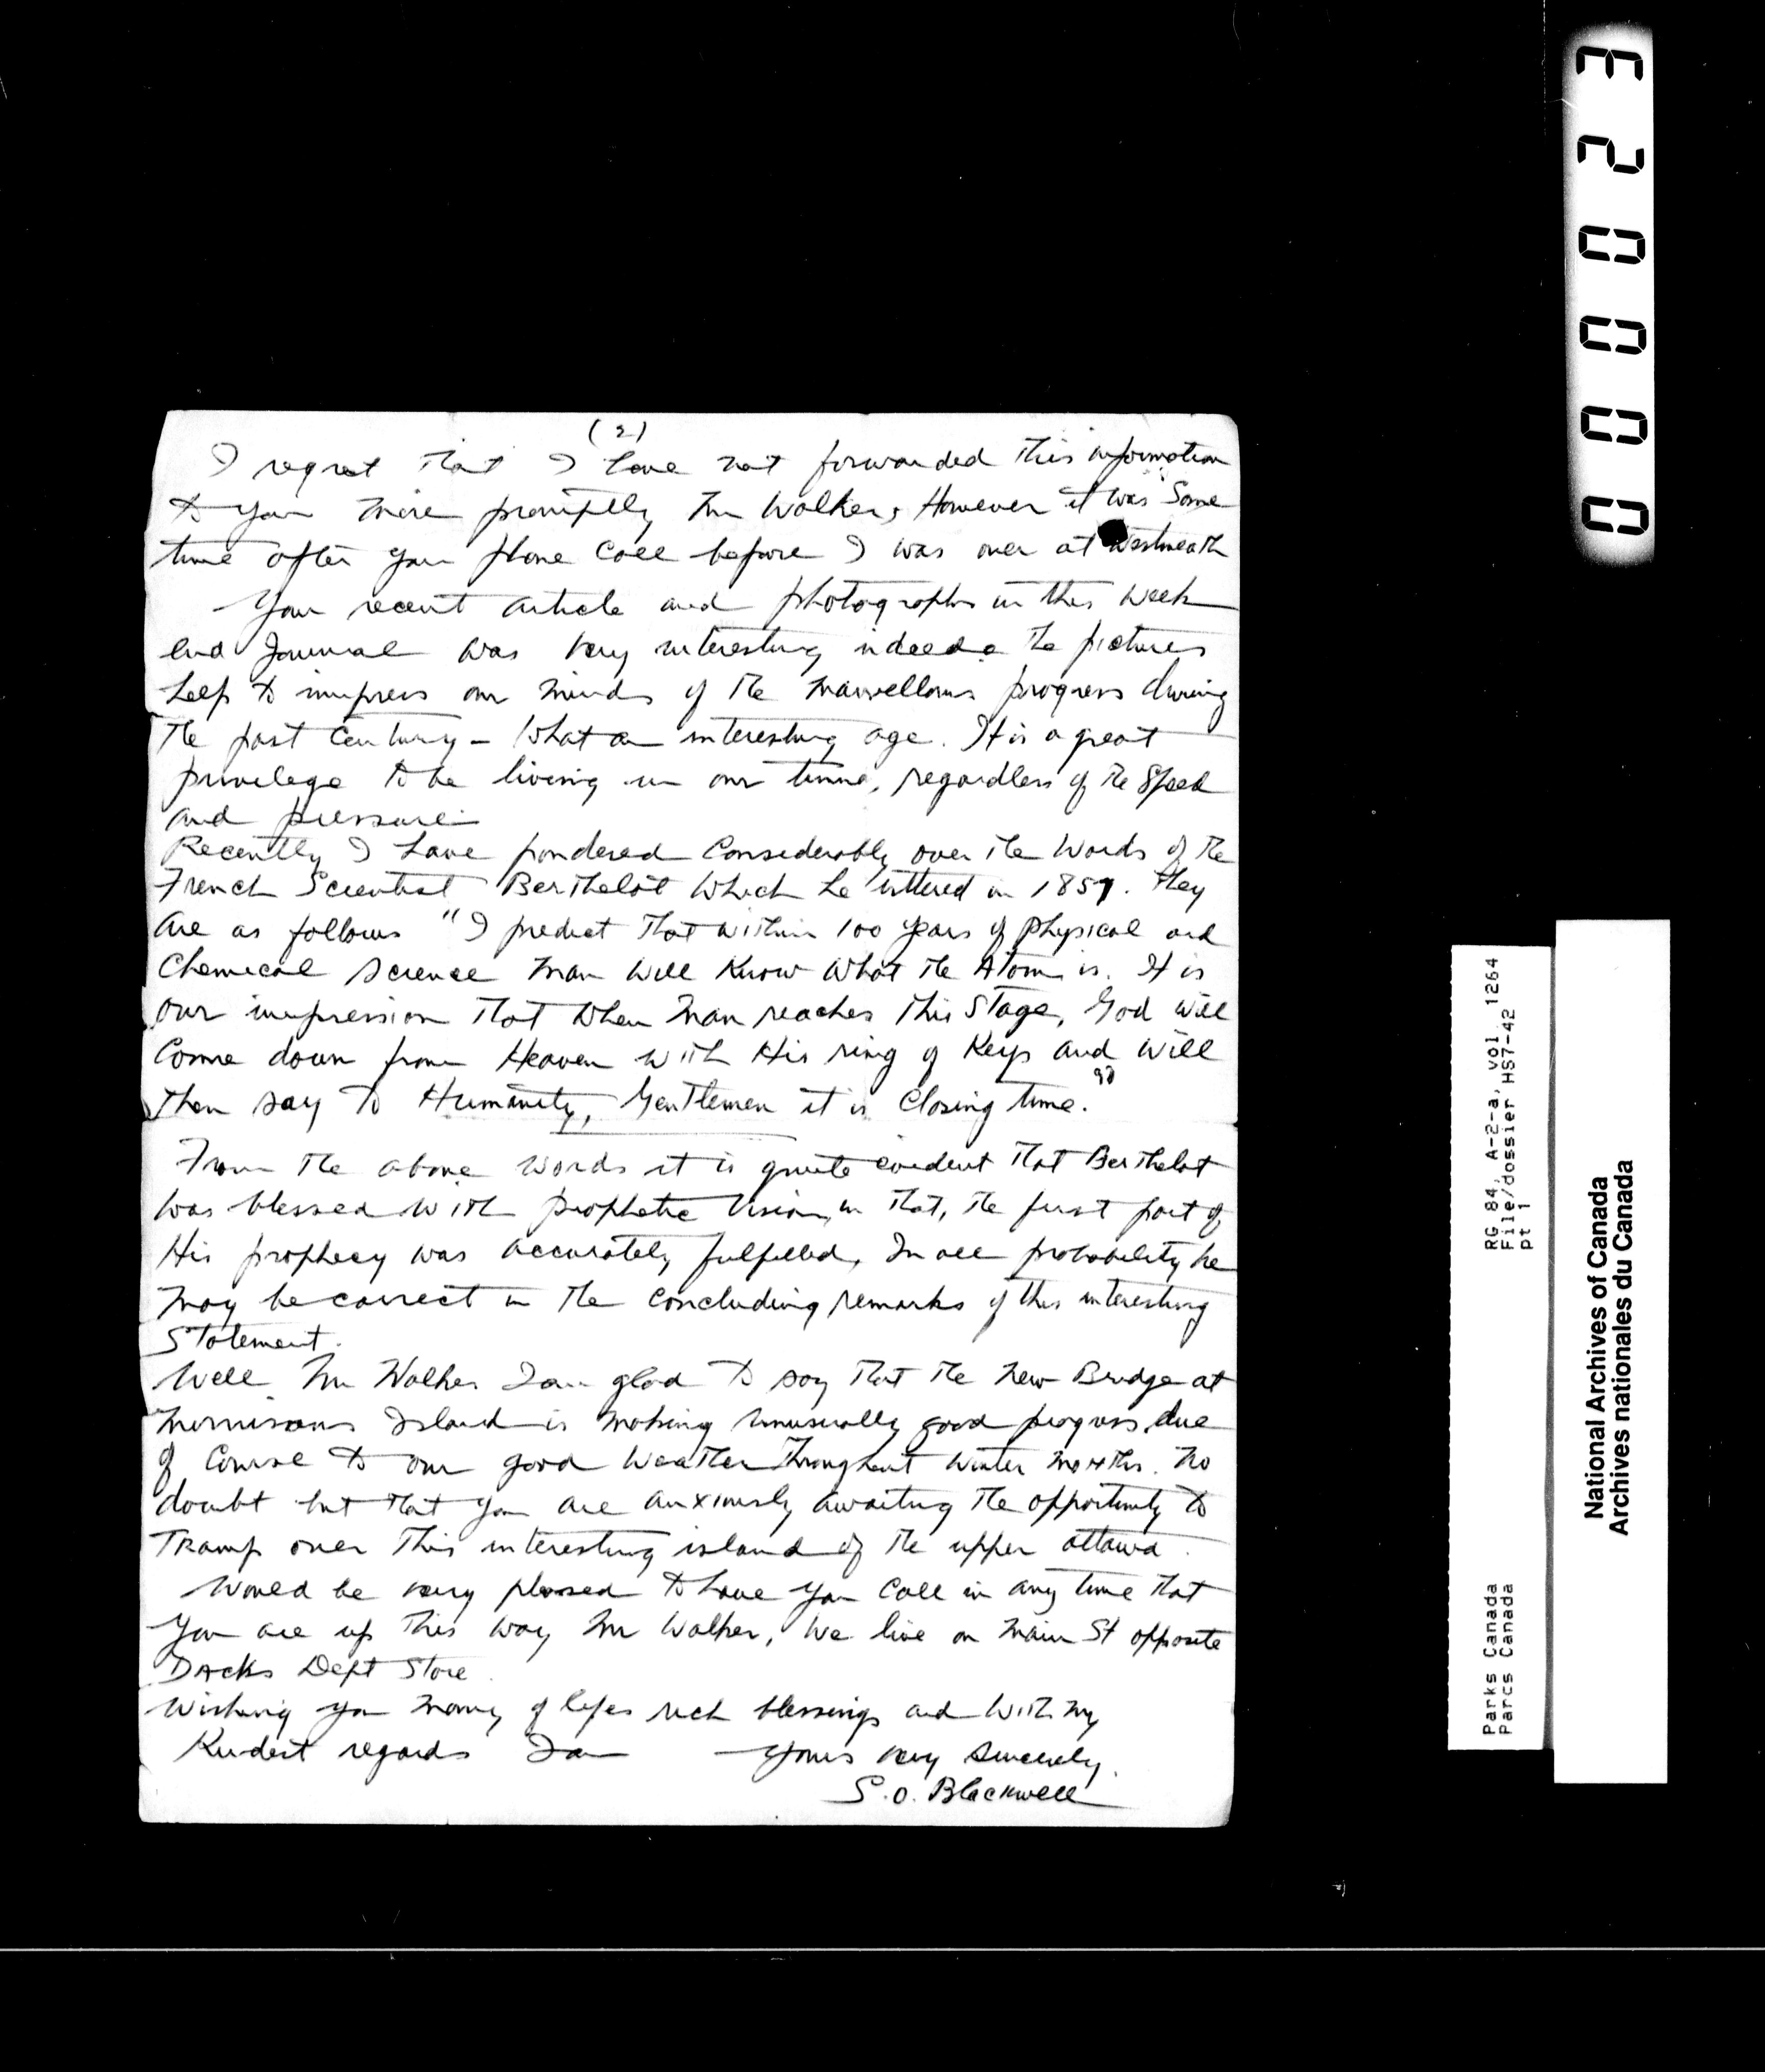 (2)
I regret that I have not forwarded this information
to you more promptly Mr Walker, However it was some
time after your phone call before I was over at Westmeath
Your recent article and photographs in this week
end Journal was very interesting indeed. The pictures
help to impress our minds of the marvellous progress during
the past century - What an interesting age. It is a great
privilege to be living in our time, regardless of the speed
and pressure.
Recently I have pondered Considerably over the words of the
French Scientist Berthelot which he uttered in 1857. They
are as follows "I predict that within 100 years of physical and
Chemical science man will Know what the Atom is. It is
our impression that when man reaches this stage, God will
Come down from Heaven with His ring of Keys and will
then say to Humanity, Gentlemen it is Closing time."
From the above words it is quite evident that Berthelot
was blessed with prophetic vision, in that, the first part of
His prophecy was accurately fulfilled, In all probability he
may be correct in the concluding remarks of this interesting
Statement.
Well Mr Walker I am glad to say that the new Bridge at
Morrisons Island is making unusually good progress, due
of Course to our good weather throughout winter months. No
doubt but that you are anxiously awaiting the opportunity to
Tramp over this interesting island of the upper Ottawa.
Would be very pleased to have you call in any time that
you are up this way Mr Walker, We live on Main St opposite
DACKs Dept Store.
Wishing you many of lifes rich blessings and with my
Kindest regards I am Yours very sincerely.
S.O. Blackwell
000023
RG 84, A-2-a, vol. 1264
File/dossier HS7-42
pt 1
Parks Canada
Parcs Canada
National Archives of Canada
Archives nationales du Canada